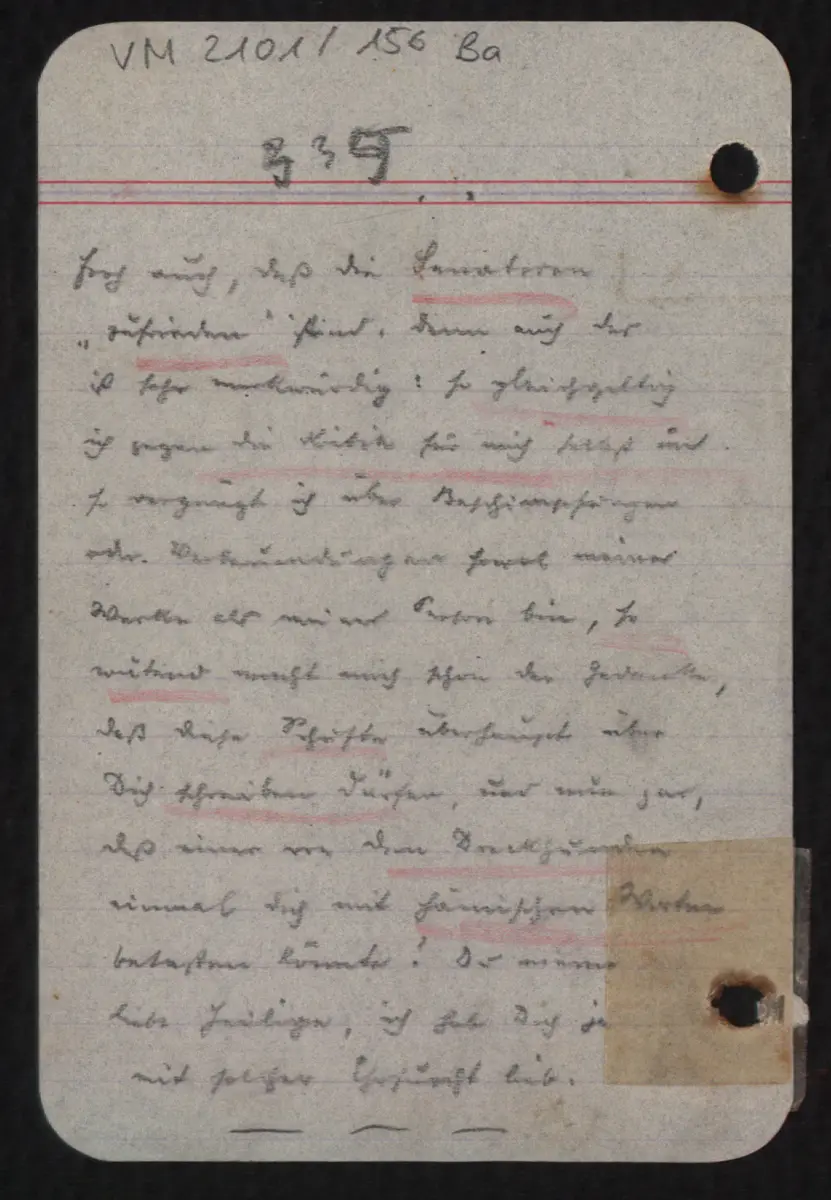 VM 2101/ 156 Ba
335
froh auch, daß die Senatoren
„zufrieden“ sind, denn auch das
ist sehr merkwürdig: so gleichgültig
ich gegen die Kritik für mich selbst und
so vergnügt ich über Beschimpfungen
oder Verleumdungen sowol meiner
Werke als meiner Person bin, so
wütend macht mich schon der Gedanke,
daß diese Schufte überhaupt über
Dich schreiben dürfen, und nun gar,
daß einer von den Dreckhunden
einmal Dich mit hämischen Worten
betasten könnte! Du meine
liebe Heilige, ich hab Dich ja
mit solcher Ehrfurcht lieb.